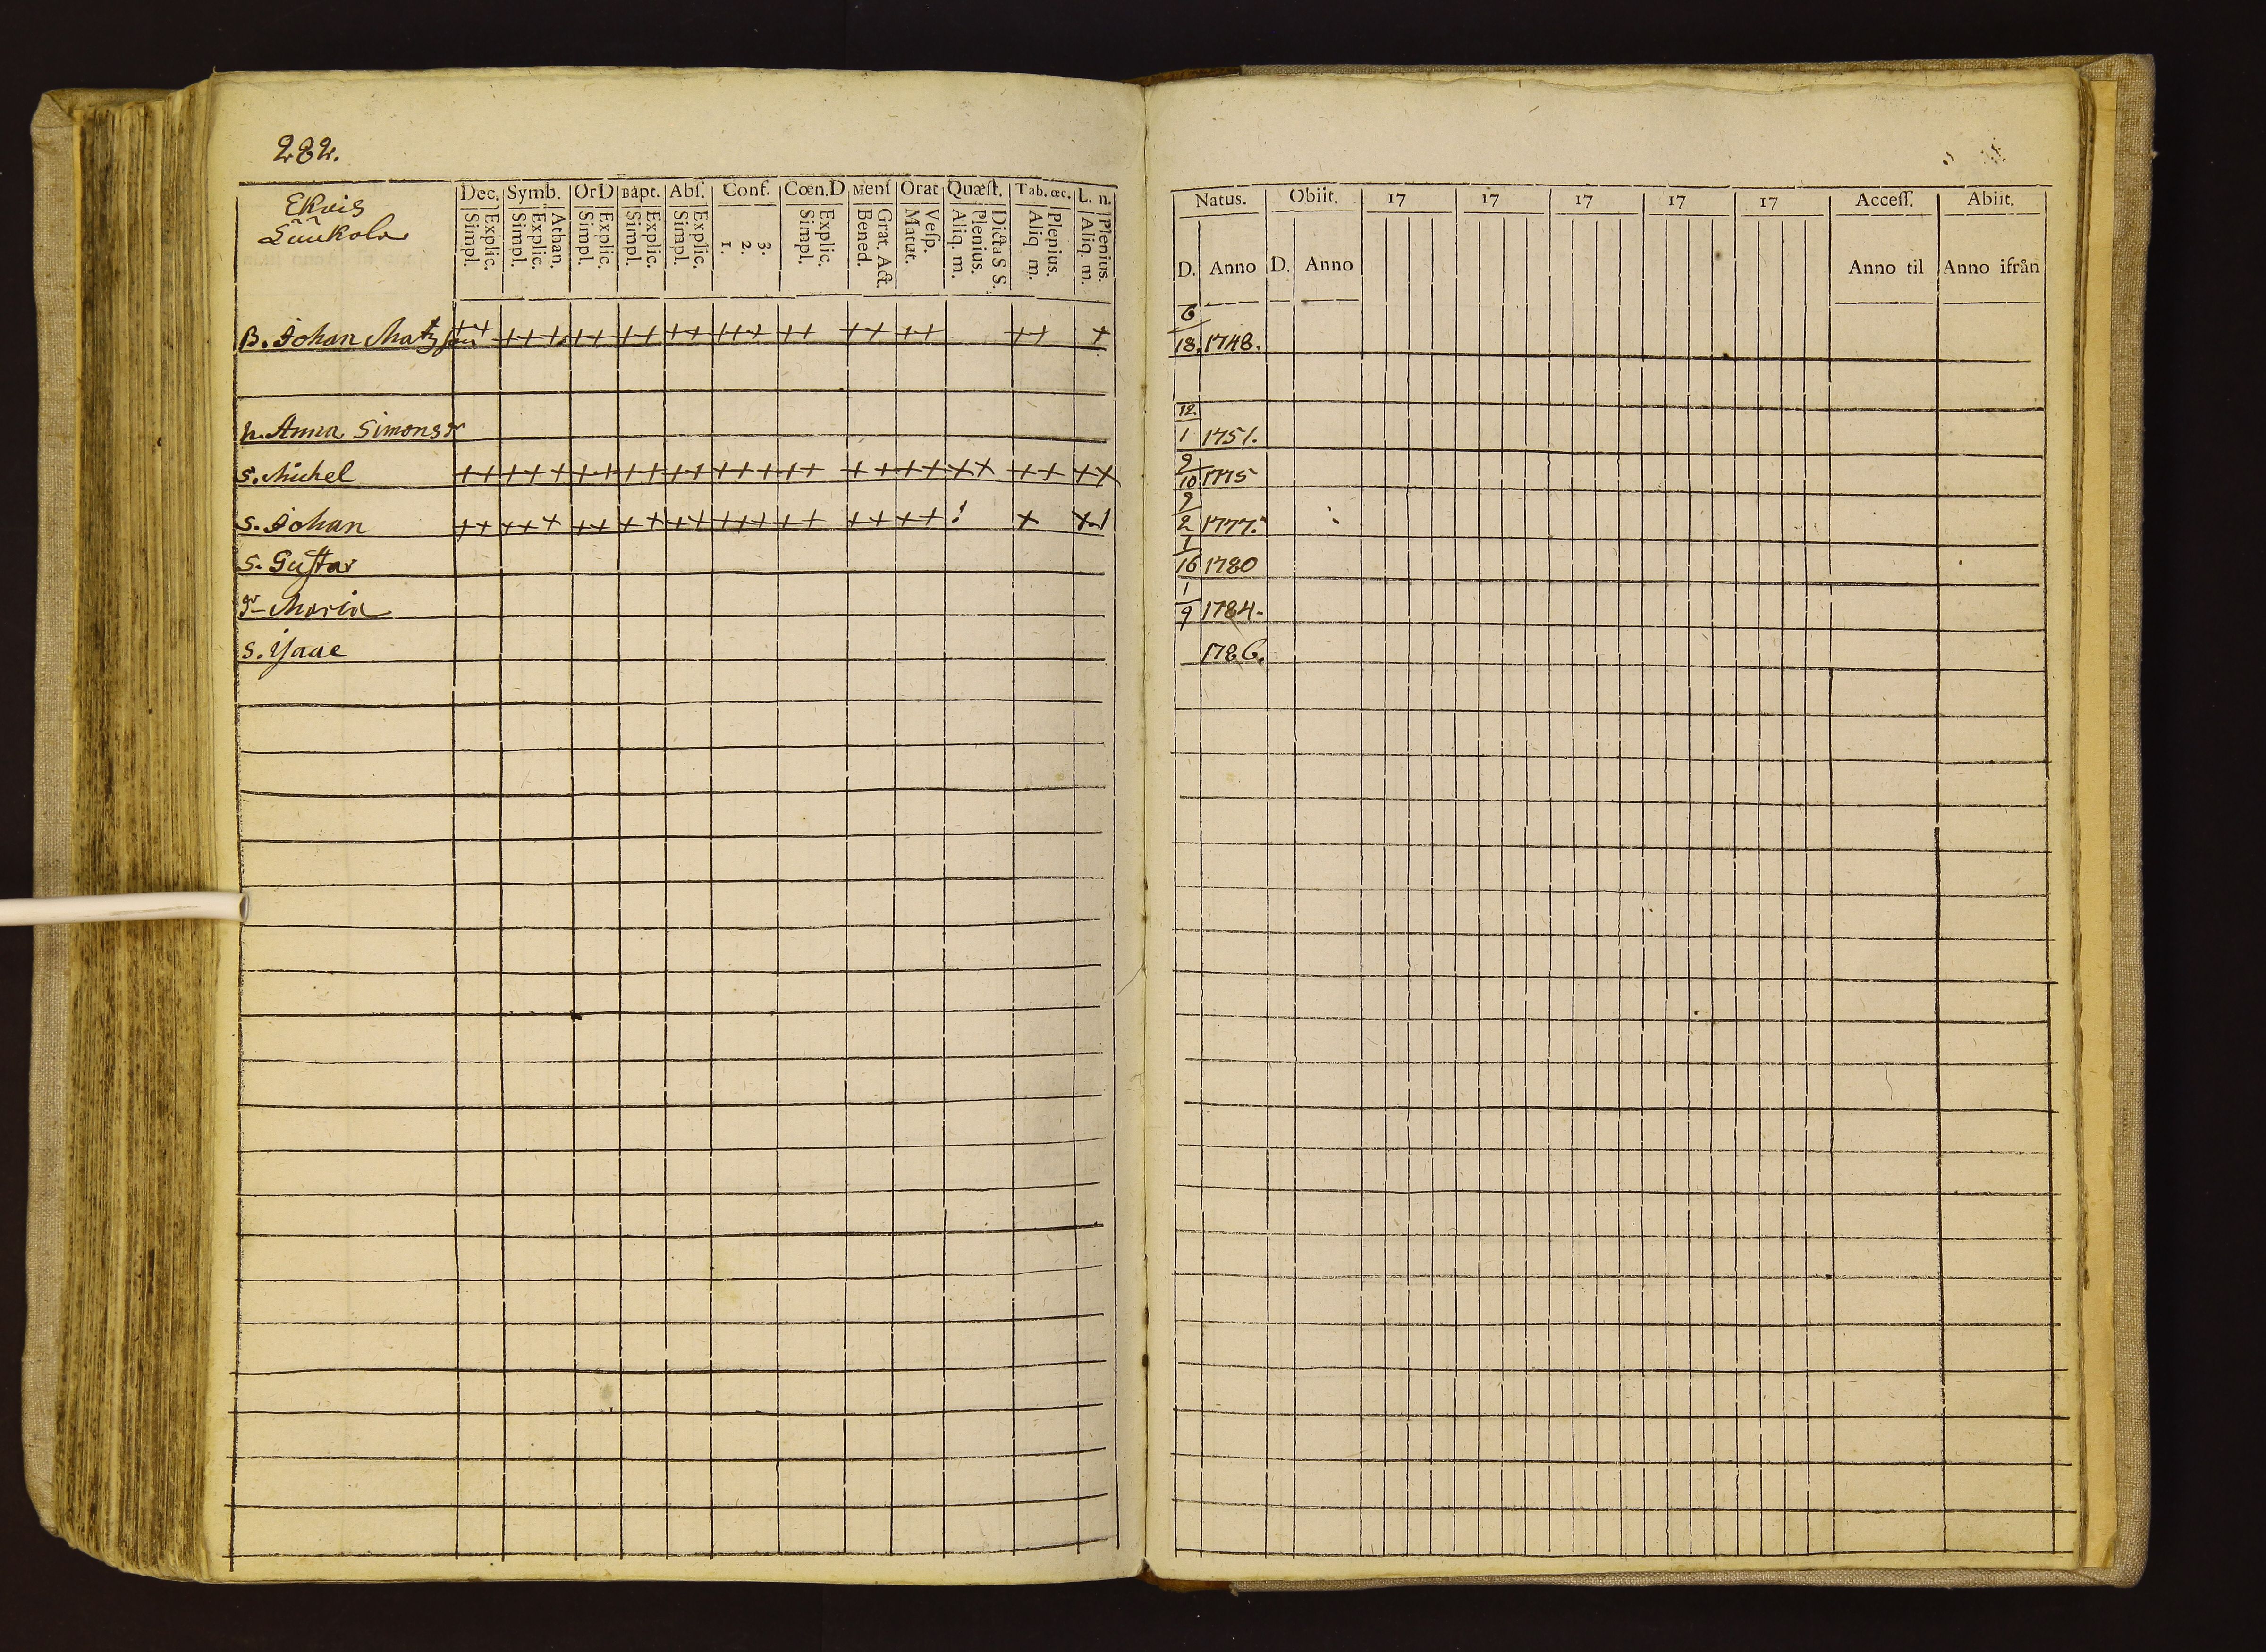 282.
Ekvis
Luukola
Dec. Symb. OrD Bapt. Abſ. Conf. Cœn.D Menſ Orat Quæſt. Tab. œc. L. n.
Explic. Simpl. Athan. Explic. Simpl. Explic. Simpl. Explic. Simpl. Explic. Simpl. 3. 2. 1. Explic. Simpl. Grat. Act. Bened. Veſp. Matut. Dicta S S. Plenius. Aliq. m. Plenius. Aliq m. Plenius. Aliq. m.
B. Johan Matzson ++ +++ ++ ++ ++ +++ ++ ++ ++ ++ +
h. Anna Simonsdr
S. Michel ++ +++ ++ ++ ++ +++ ++ ++ ++ ++ ++ ++
S. Johan ++ +++ ++ ++ ++ +++ ++ ++ ++ ! + +!
S. Gustav
dr Maria
S. Isaac
Natus. Obiit. 17 17 17 17 17 Acceſſ. Abiit.
D. Anno D. Anno Anno til Anno ifrån
6/18. 1748.
12/1 1751.
9/10 1775
9/2 1777.
1/16 1780
1/9 1784.
1786.